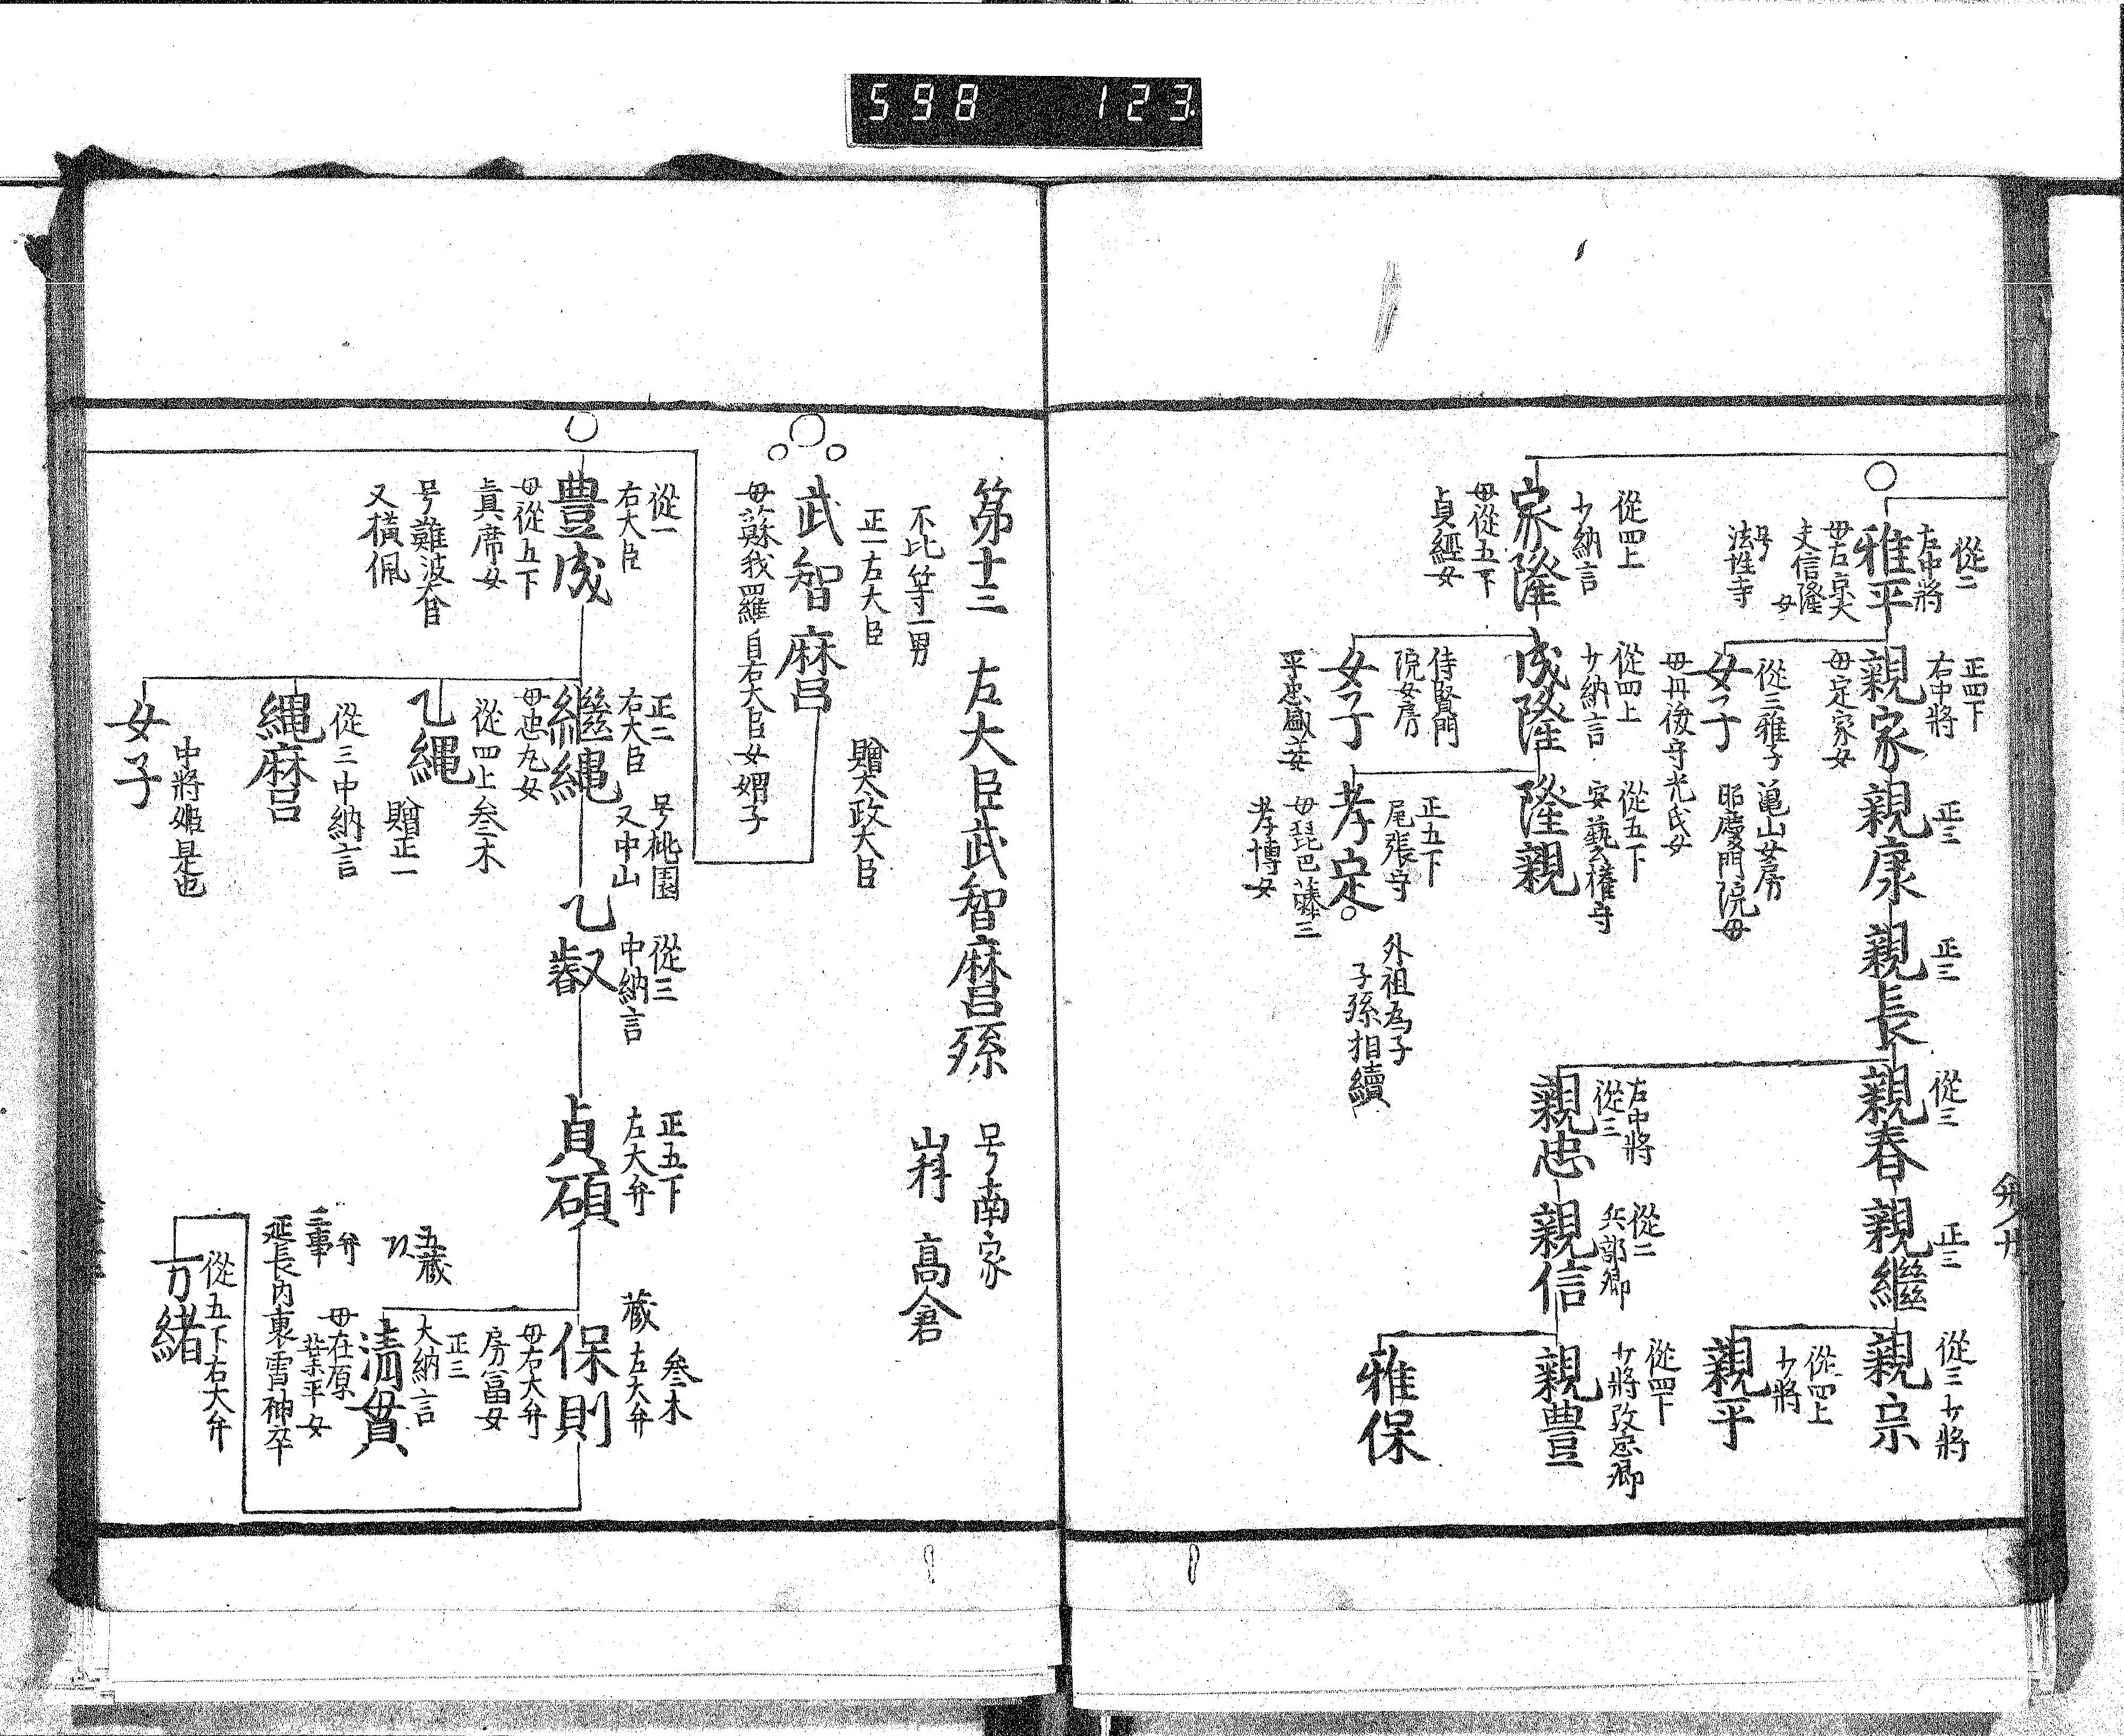 598 123.
從二
左中將
雅平
母右京大
夫信隆
女
号
法性寺
正四下
右中將
親家
母定家女
正三
親康
正三
親長
從三
親春
正三
親繼
從三少將
親宗
從四上
少將
親平
女子
從三雅子 亀山女房
昭慶門院母
母丹後守光氏女
左中將
從三
親忠
從二
兵部卿
親信
從四下
少將改忠卿
親豊
雅保
從四上
少納言
家隆
母從五下
貞經女
從四上
少納言
成隆
從五下
安藝權守
隆親
女子
侍賢門
院女房
平忠盛妾
正五下
尾張守
孝定
母琵巴藤三
孝博女
外祖為子
子孫相續
第十三 左大臣武智麿孫 号南家
山科 高倉
不比等一男
正一右大臣 贈太政大臣
武智麿
母蘇我羅自右大臣女娟子
從一
右大臣
豊成
母從五下
真席女
号難波大臣
又横佩
正二
右大臣
号桃園
又中山
繼縄
母忠丸女
從三
中納言
乙叡
正五下
左大弁
貞碩
參木
蔵 左大弁
保則
母右大弁
房冨女
正三
大納言
清貫
五蔵
弁
三事
母在原
業平女
延長内裏雷神卒
從五下右大弁
万緒
從四上參木
乙縄
贈正一
從三中納言
縄麿
女子
中將姫是也